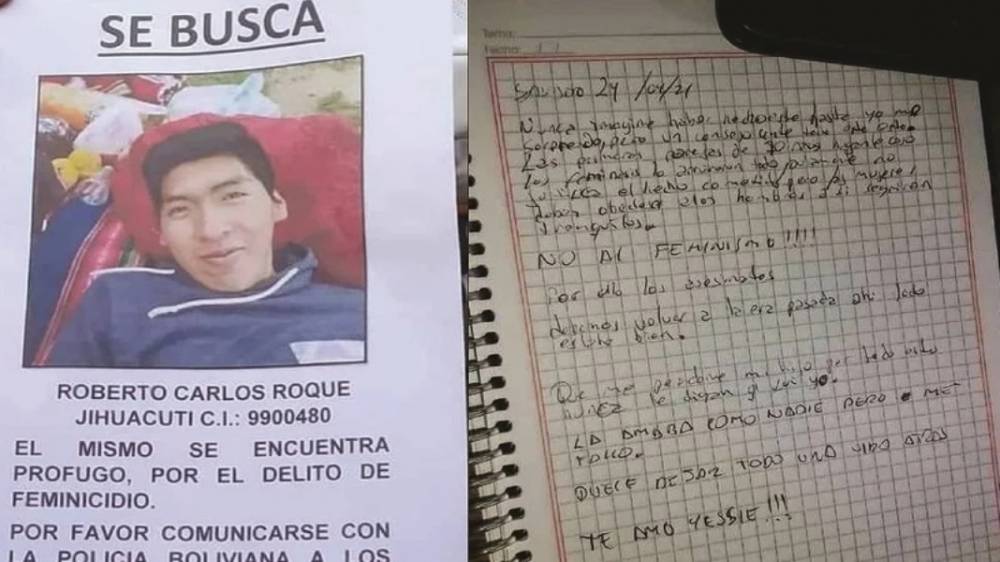 SE BUSCA
ROBERTO CARLOS ROQUE
JIHUACUTI C.I.: 9900480
EL MISMO SE ENCUENTRA
PROFUGO, POR EL DELITO DE
FEMINICIDIO.
POR FAVOR COMUNICARSE CON
LA POLICIA BOLIVIANA A LOS
Tema:
Fecha: / /
Sabado 24 /04/21
Nunca imagine haber hecho este hasta yo me
un consejo
Las primeras de
las feministas lo
el hecho pero las mujeres
deben obedecer a los hombres o si seguirán
NO AL FEMINISMO!!!!
Por ello los asesinatos
debemos volver a la era pasada ahi todo
estaba bien.
Que me perdone mi hijo por todo esto
nunca le digan q fui yo.
LA AMABA COMO NADIE PERO ME
DUELE DEJAR TODO UNA VIDA ATRAS
TE AMO YESSIE!!!